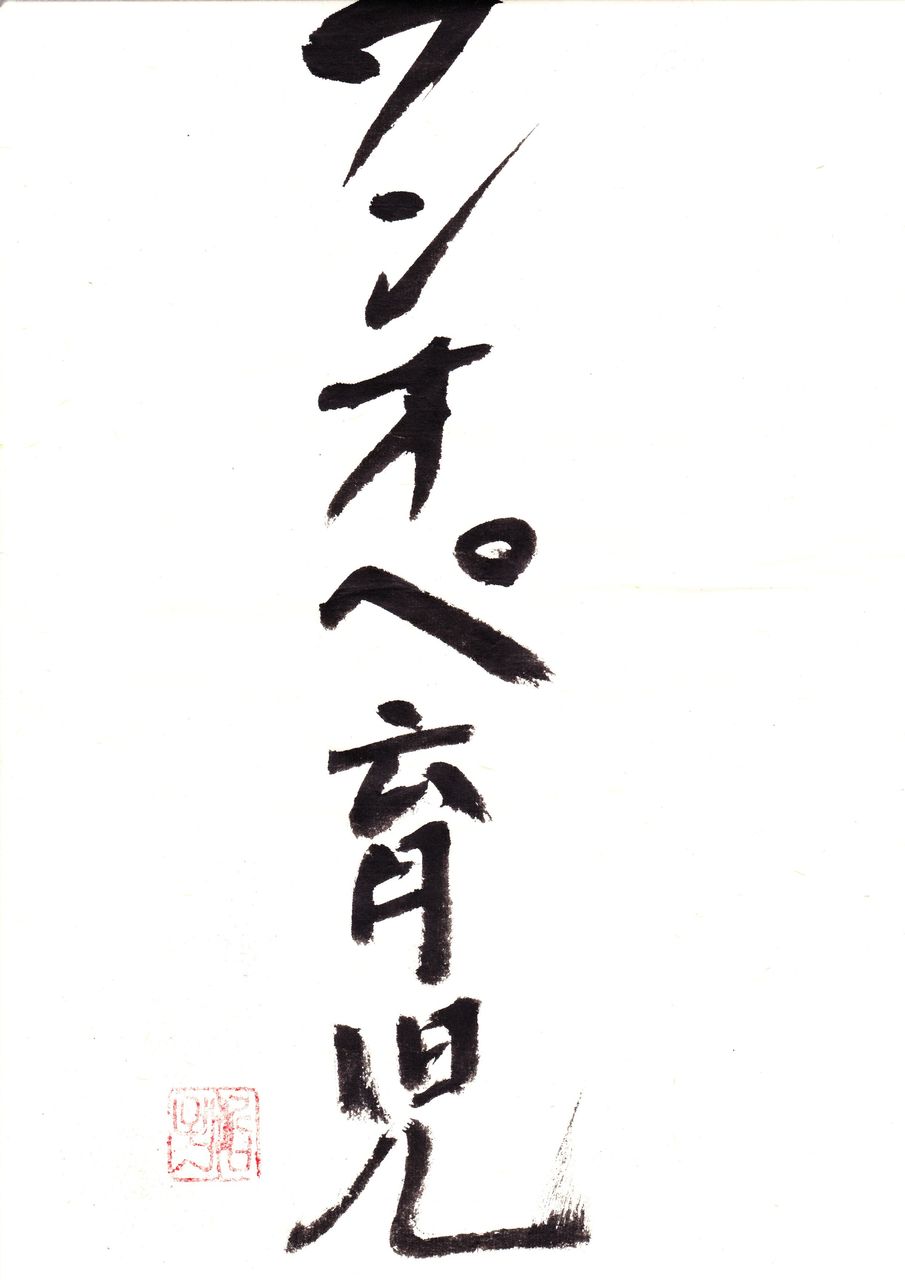 ワンオペ育児